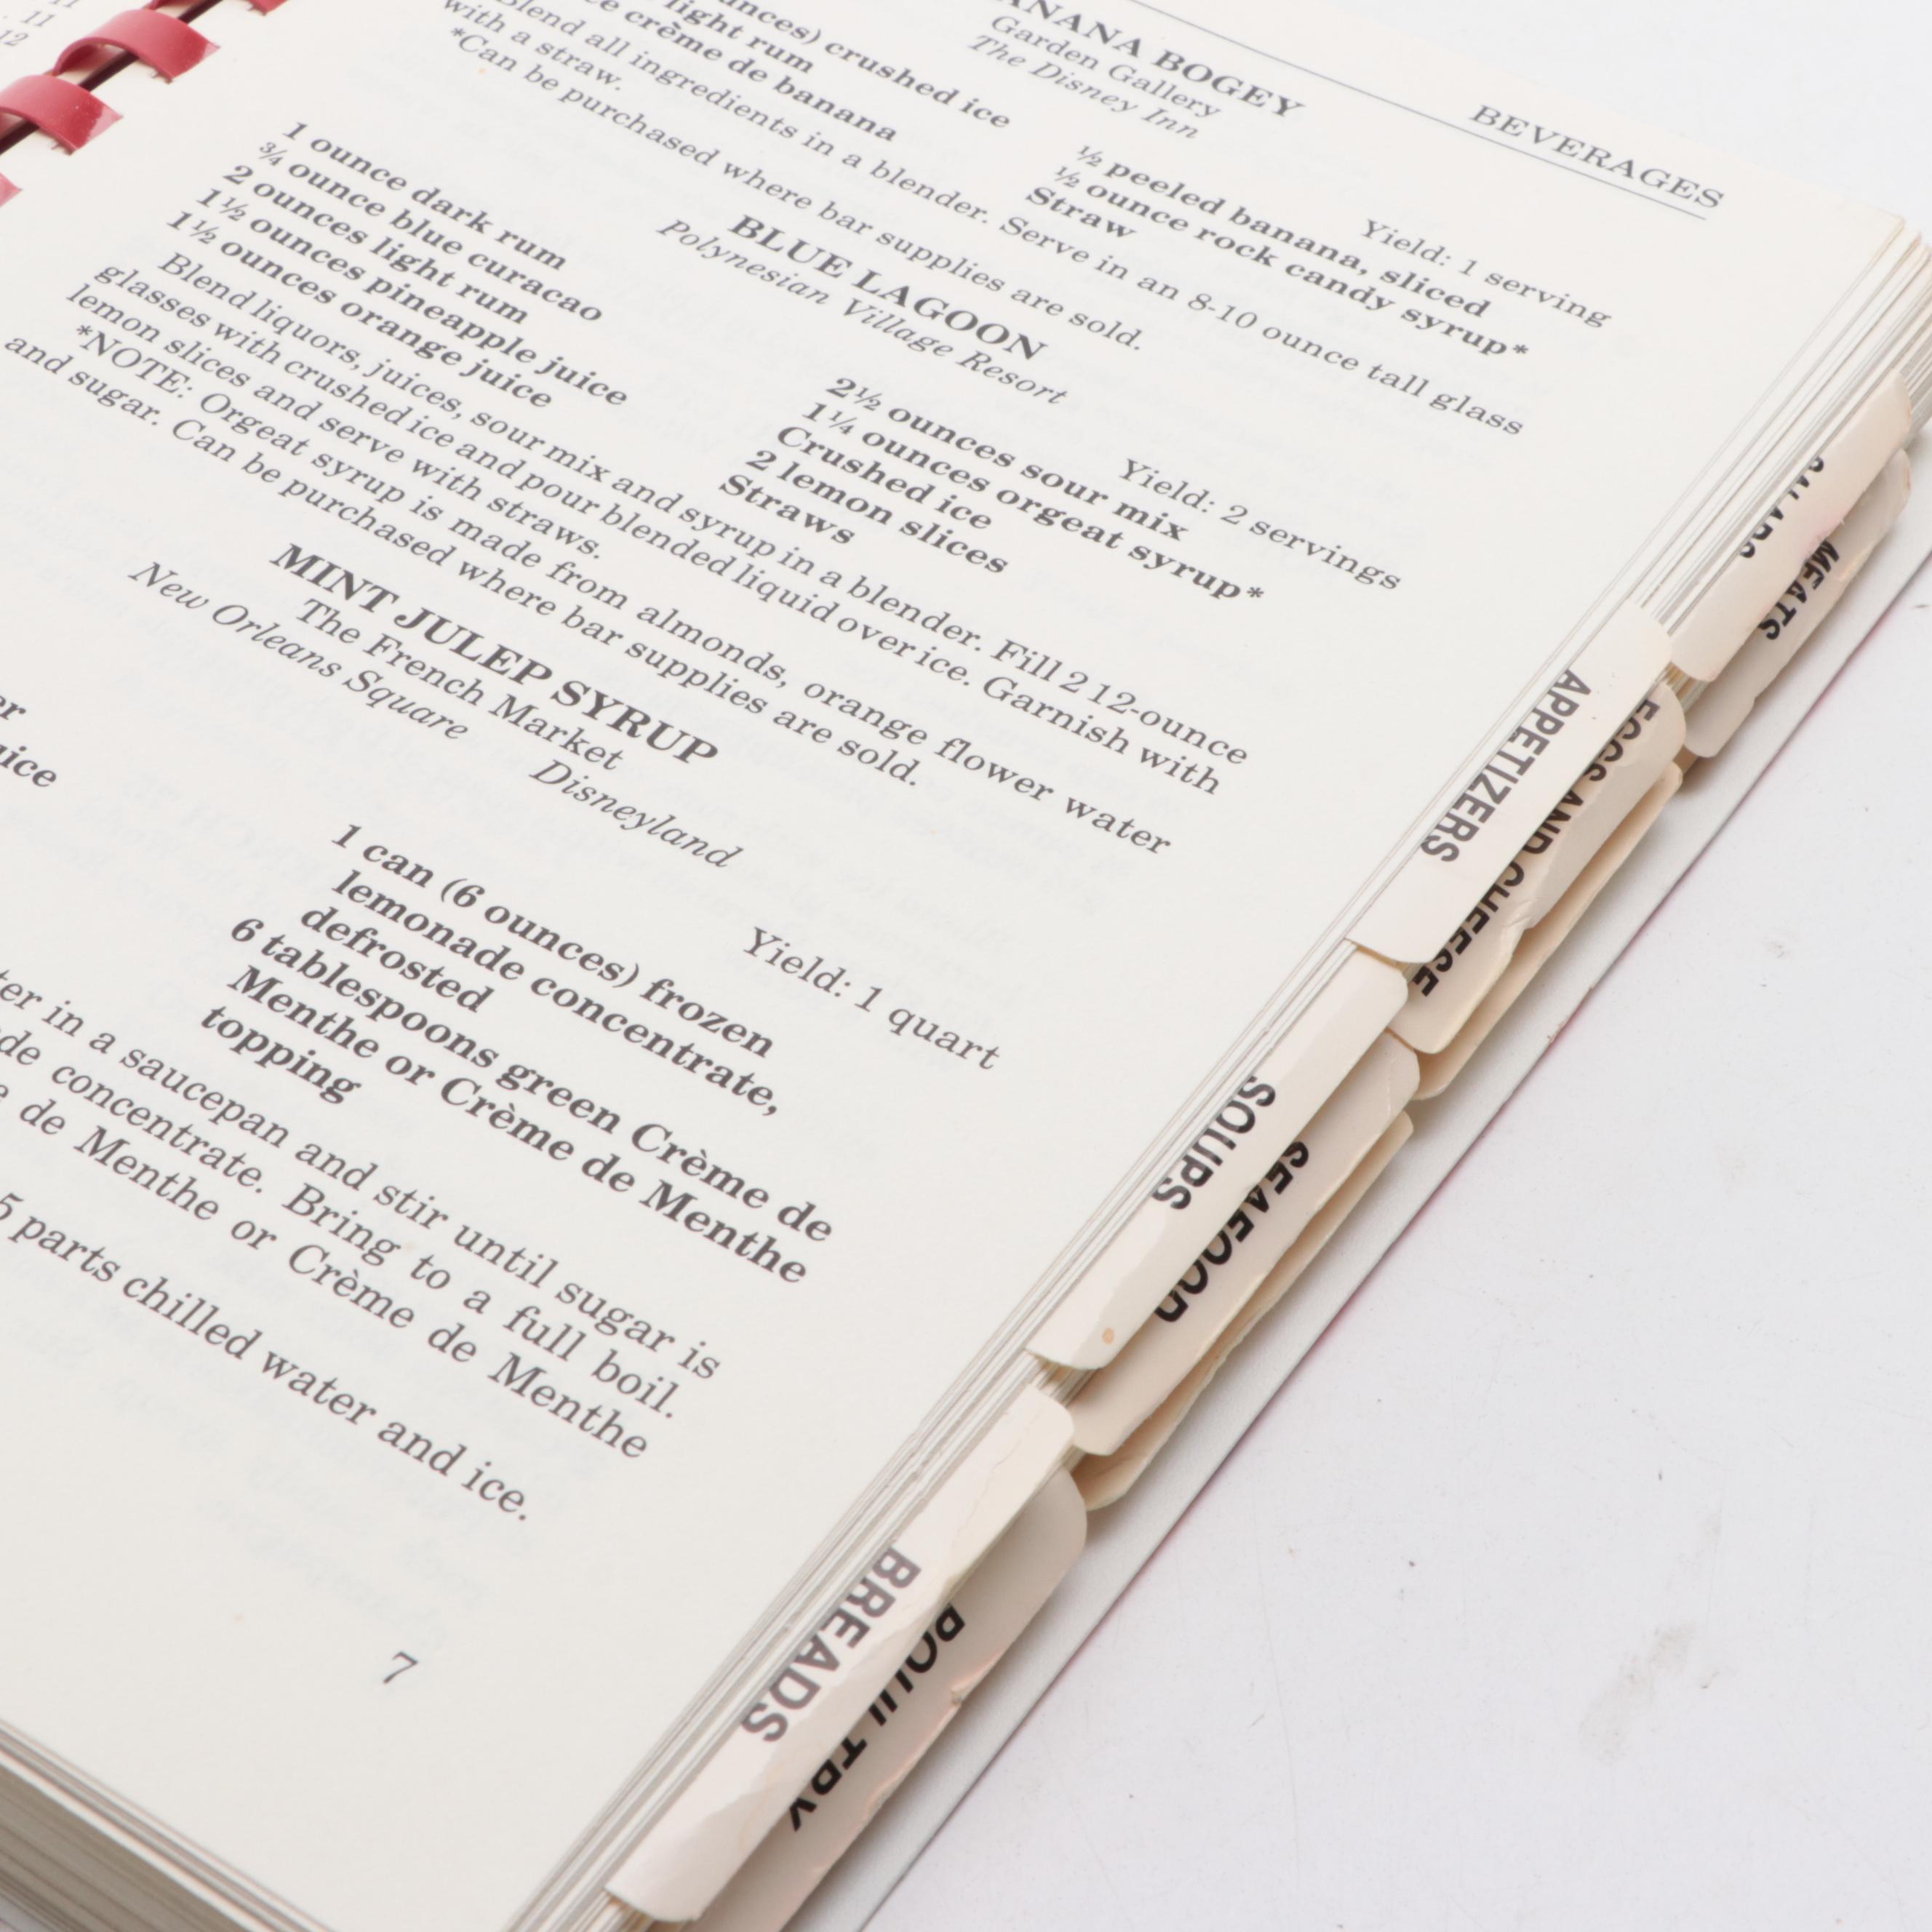 11
12
BEVERAGES
BANANA BOGEY
Garden Gallery
The Disney Inn
Yield: 1 serving
ounces) crushed ice
light rum
crème de banana
½ peeled banana, sliced
½ ounce rock candy syrup*
Straw
Blend all ingredients in a blender. Serve in an 8-10 ounce tall glass
with a straw.
*Can be purchased where bar supplies are sold.
BLUE LAGOON
Polynesian Village Resort
Yield: 2 servings
1 ounce dark rum
¾ ounce blue curacao
2 ounces light rum
1½ ounces pineapple juice
1½ ounces orange juice
2½ ounces sour mix
1¼ ounces orgeat syrup*
Crushed ice
2 lemon slices
Straws
Blend liquors, juices, sour mix and syrup in a blender. Fill 2 12-ounce
glasses with crushed ice and pour blended liquid over ice. Garnish with
lemon slices and serve with straws.
*NOTE: Orgeat syrup is made from almonds, orange flower water
and sugar. Can be purchased where bar supplies are sold.
MINT JULEP SYRUP
The French Market
New Orleans Square
Disneyland
Yield: 1 quart
1 can (6 ounces) frozen
lemonade concentrate,
defrosted
6 tablespoons green Crème de
Menthe or Crème de Menthe
topping
in a saucepan and stir until sugar is
concentrate. Bring to a full boil.
de Menthe or Crème de Menthe
5 parts chilled water and ice.
7
SALADS
MEATS
APPETIZERS
EGGS AND CHEESE
SOUPS
SEAFOOD
BREADS
POULTRY